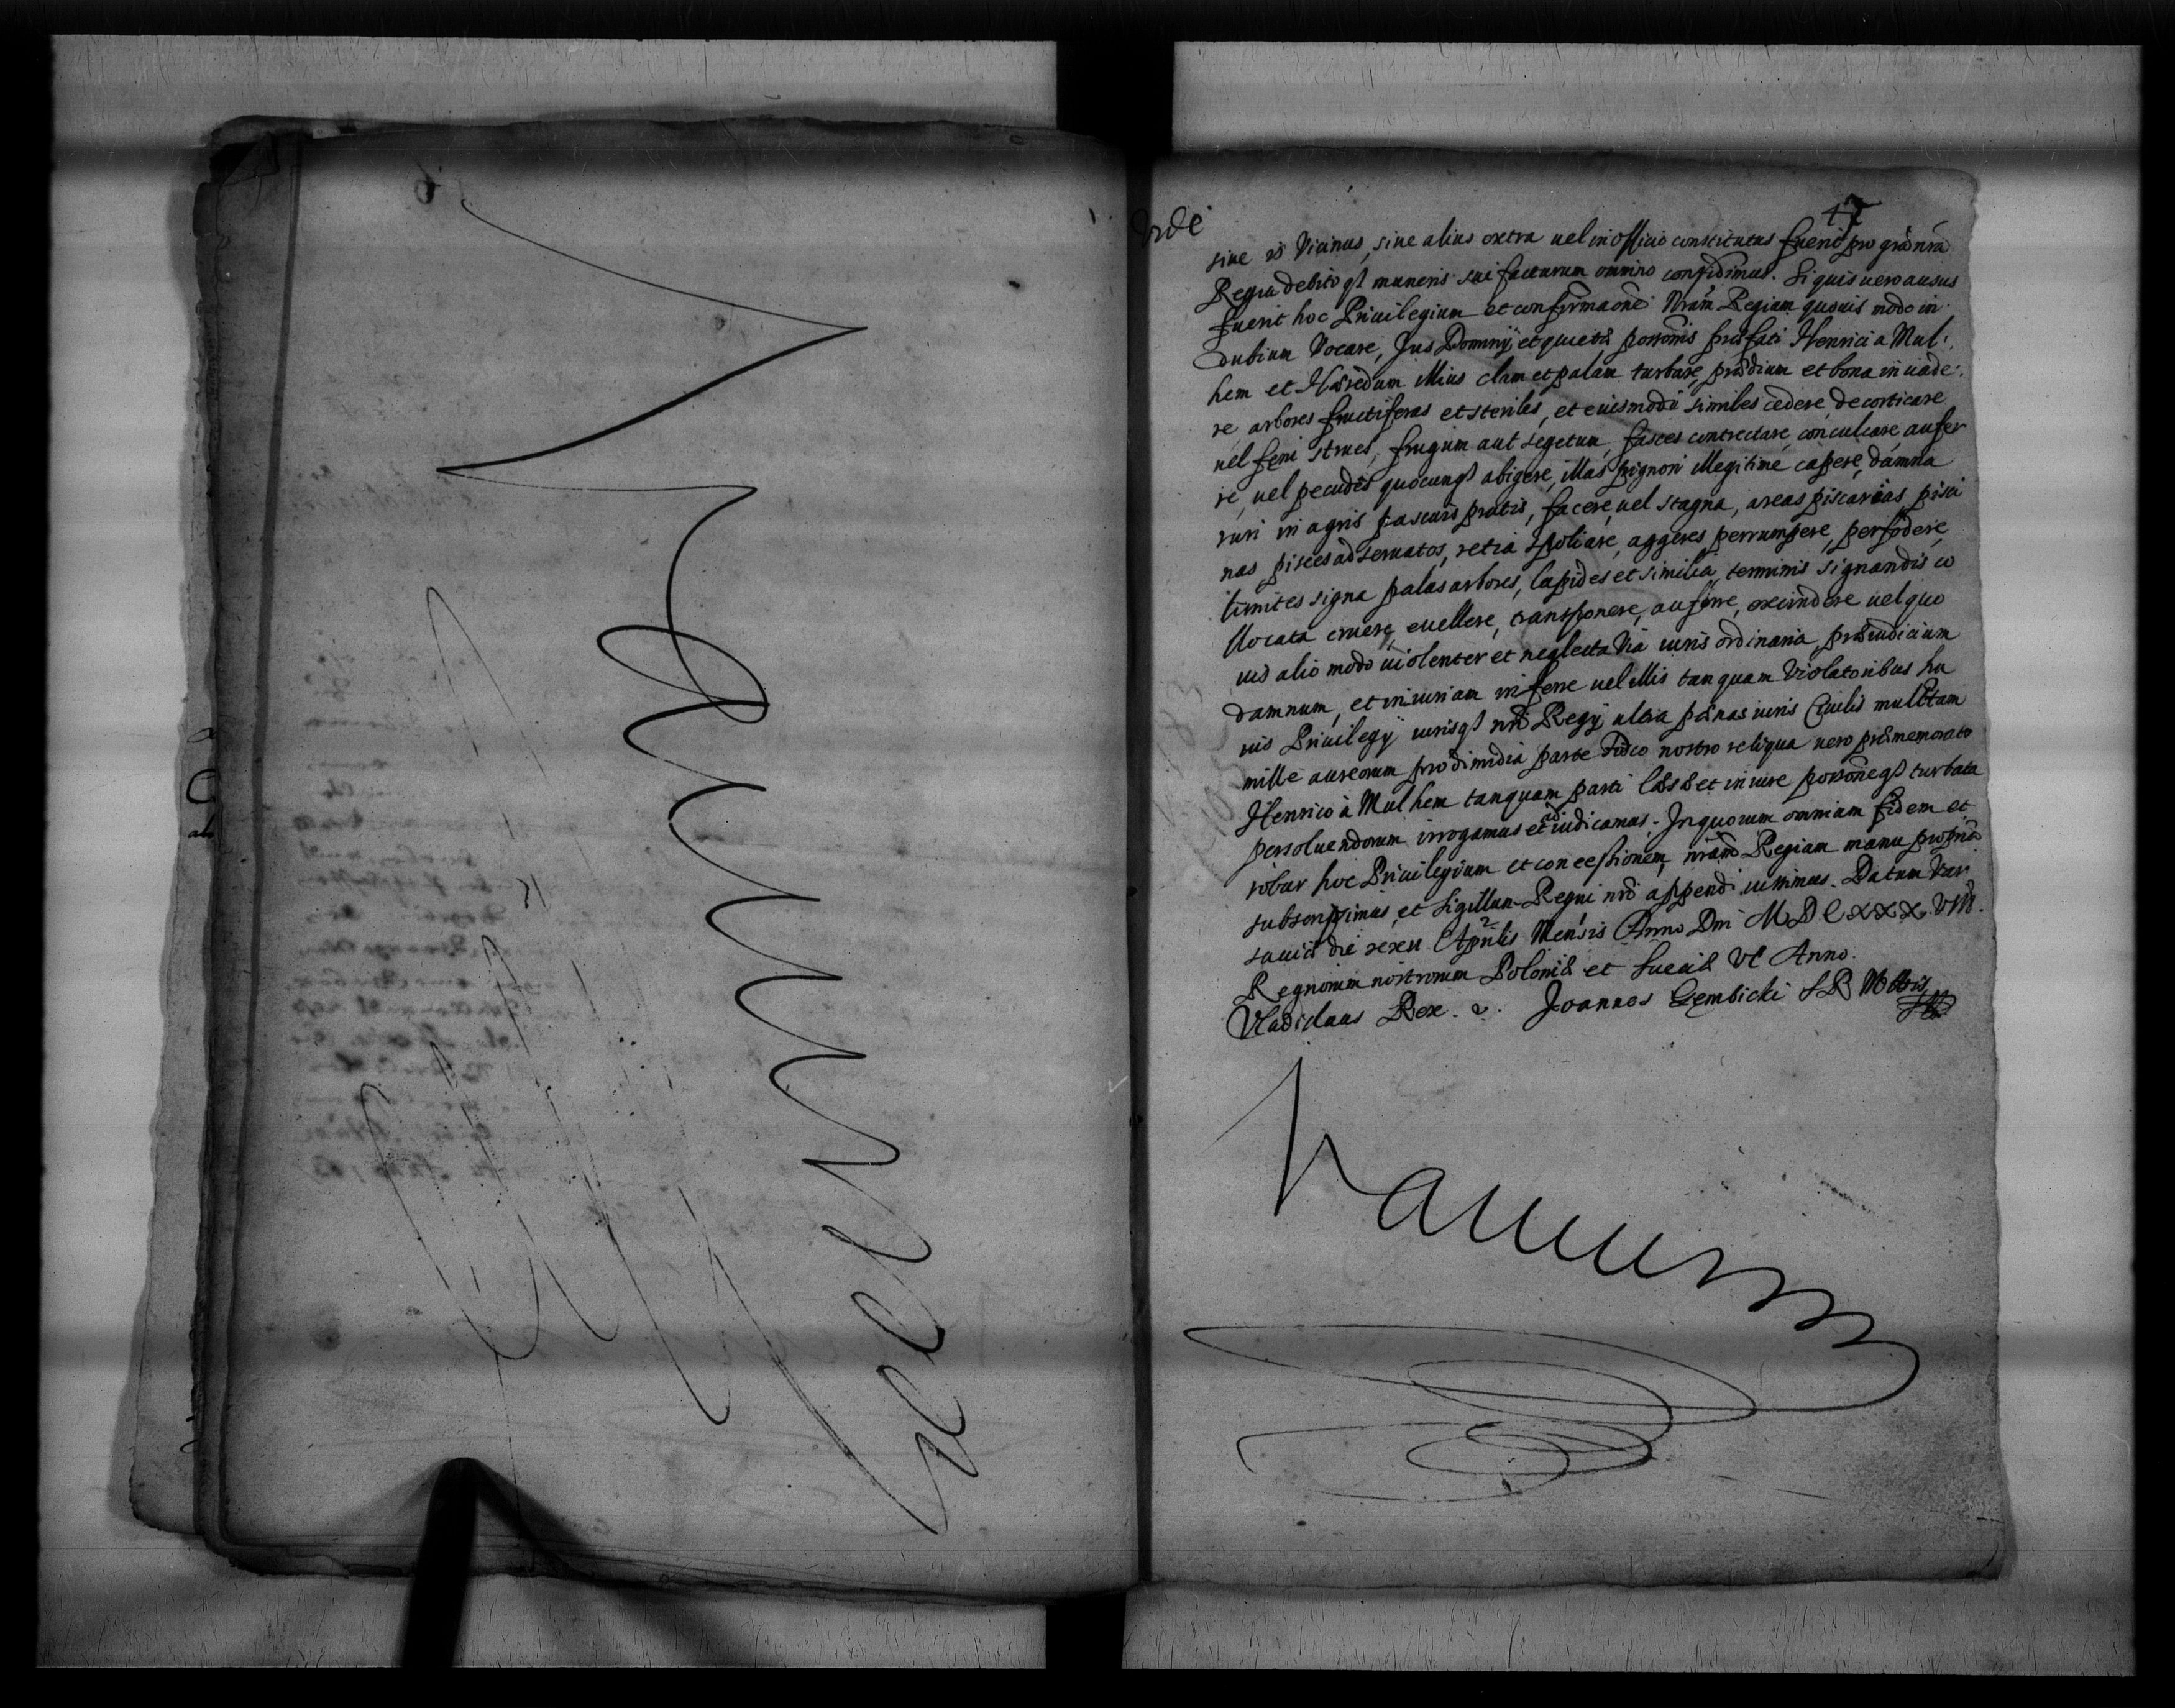 47
siue is Vicinus, siue alius extra uel in officio constitutus fuerit pro grâ nrâ
Regia debito q3 muneris sui facturum omnino confidimus. Si quis uero ausus
fuerit hoc Priuilegium et confirmaone Nram Regiam quouis modo in
dubium Vocare, Jus Dominij et quietæ possonis præfati Henrici a Mul:
hem et Hæredum illius clam et palam turbare, prædium et bona inuade:
re arbores fructiferas et steriles, et eiusmodi similes cedere, decorticare
uel feni strues, frugum aut segetum fasces contrectare, conculcare aufer
re, uel pecudes quocunq3 abigere, illas pignori illegitime capere, damna
ruri in agris pascuis pratis, facere, uel stagna, areas piscarias pisci
nas, pisces adseruatos, retia spoliare, aggeres perrumpere, perfodere,
limites signa palas arbores, lapides et similia, terminis signandis co
llocata eruere, euellere, transponere, auferre, excindere uel quo
uis alio modo uiolenter et neglecta Via iuris ordinaria, præiudicium
damnum, et iniuriam inferre uel illis tanquam Violatoribus hu
ius Priuilegij iurisq3 nri Regij ultra pænas iuris Ciuilis mulctam
mille aureorum pro dimidia parte Fisco nostro reliqua uero præmemorato
Henrico à Mulhem tanquam parti læsæ et in iure possoneq3 turbata
persoluendorum irrogamus et adiudicamus. In quorum omnium fidem et
robur hoc Priuilegium et concessionem nram Regiam manu propria
subscripsimus, et Sigillum Regni nri appendi iussimus. Datum Var
sauiæ die Aprilis Mensis Anno Dni MDCXXXVIII.
Regnorum nostrorum Poloniæ et Sueciæ VI Anno.
Vladislaus Rex. Joannes Gembicki